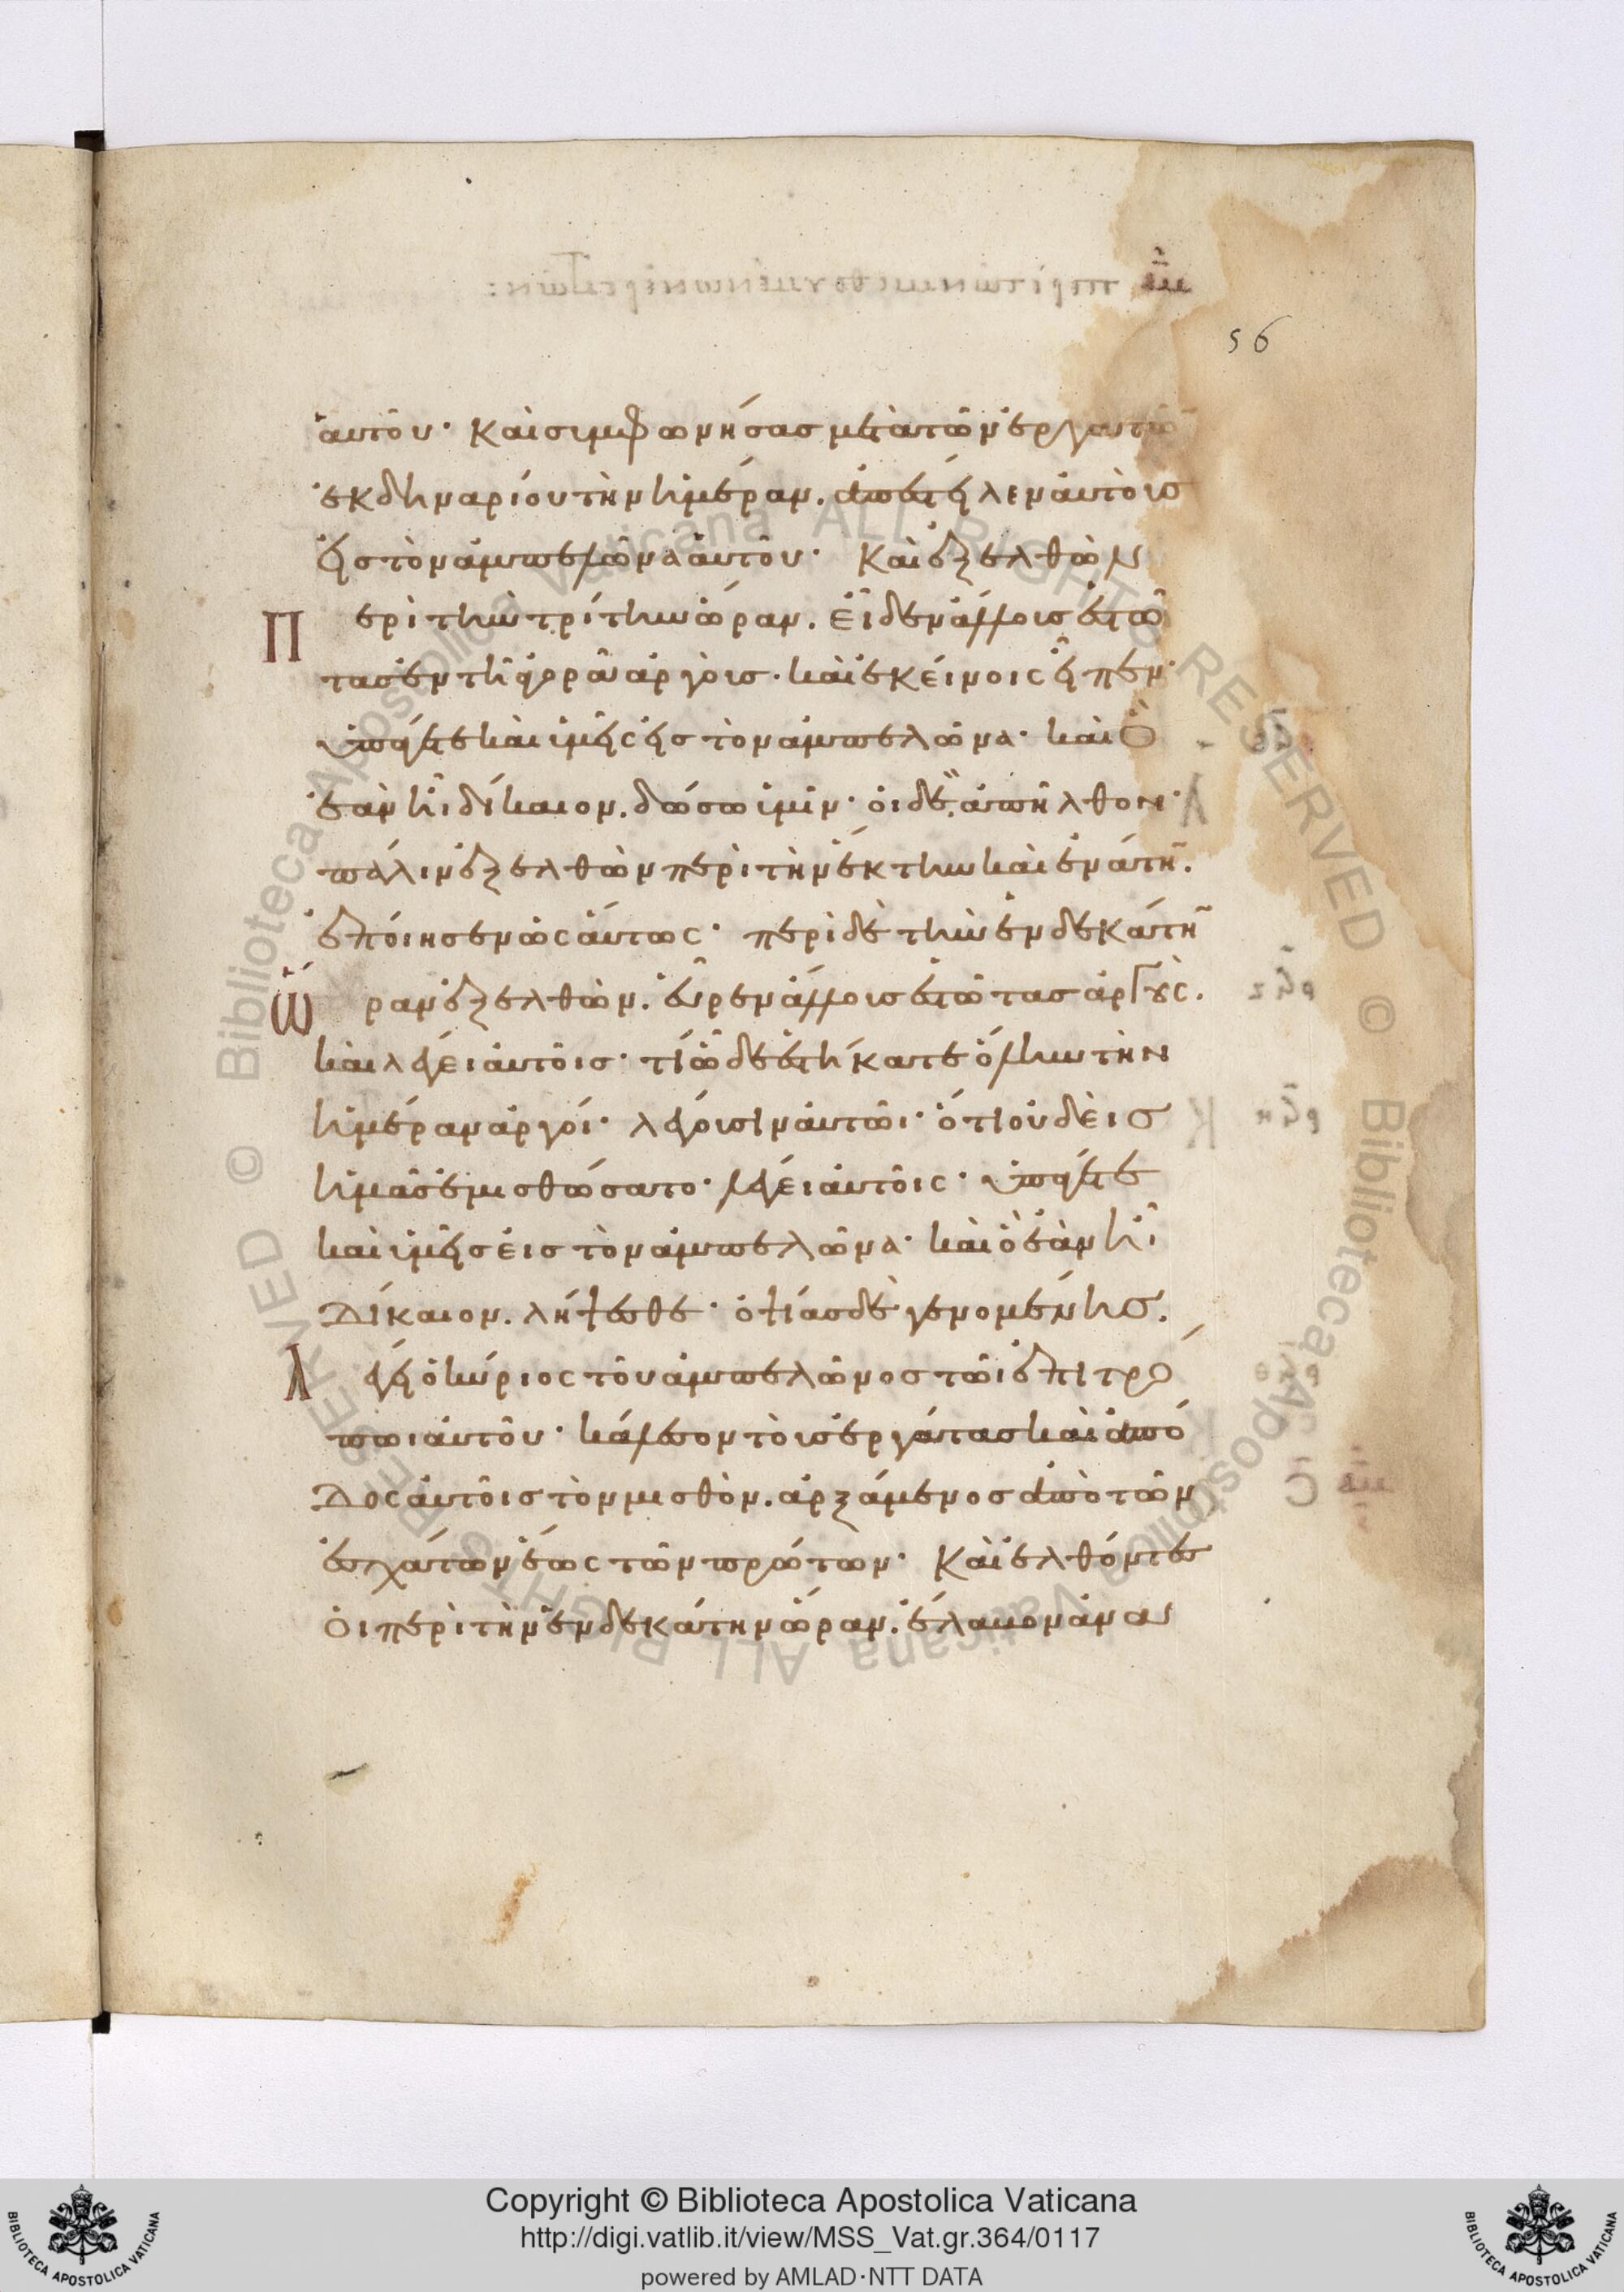 56
αὐτοῦ· Καὶ συμφωνήσας μετὰ τῶν ἐργατῶ
ἐκ δηναρίου τὴν ἡμέραν. ἀπέστειλεν αὐτοὺς
εἰς τὸν ἀμπελῶνα αὐτοῦ· Καὶ ἐξελθὼν
Περὶ τὴν τρίτην ὥραν. εἶδεν ἄλλους ἑστῶ
τας ἐν τῆ ἀγορᾶ ἀργούς· καὶ ἐκείνοις εἶπεν·
ὑπάγετε καὶ ὑμεῖς εἰς τὸν ἀμπελῶνα· καὶ ὃ
ἐὰν ἦ δίκαιον. δώσω ὑμῖν· οἱ δὲ ἀπῆλθον·
πάλιν ἐξελθὼν περὶ τὴν ἕκτην καὶ ἐνάτη̄.
ἐποίησεν ὡσαύτως· περὶ δὲ τὴν ἑνδεκάτη̄
Ὥραν ἐξελθὼν. εὗρεν ἄλλους ἑστῶτας ἀργούς.
καὶ λέγει αὐτοῖς· τί ὧδε ἑστήκατε ὅλην τὴν
ἡμέραν ἀργοί· λέγουσιν αὐτῶι· ὅτι οὐδεὶς
ἡμᾶς ἐμισθώσατο· λέγει αὐτοῖς· ὑπάγετε
καὶ ὑμεῖς εἰς τὸν ἀμπελῶνα· καὶ ὃ ἐὰν ἦ
Δίκαιον. λήψεσθε· ὀψίας δὲ γενομένης.
Λέγει ὁ κύριος τοῦ ἀμπελῶνος τῶι ἐπιτρό
πωι αὐτοῦ· κάλεσον τοὺς ἐργάτας καὶ ἀπό
Δος αὐτοῖς τὸν μισθὸν. ἀρξάμενος ἀπὸ τῶν
ἐσχάτων ἕως τῶν πρώτων· Καὶ ἐλθόντες
οἱ περὶ τὴν ἑνδεκάτην ὥραν. ἔλαβον ἀνὰ
Copyright © Biblioteca Apostolica Vaticana
http://digi.vatlib.it/view/MSS_Vat.gr.364/0117
powered by AMLAD·NTT DATA
BIBLIOTECA APOSTOLICA VATICANA
BIBLIOTECA APOSTOLICA VATICANA